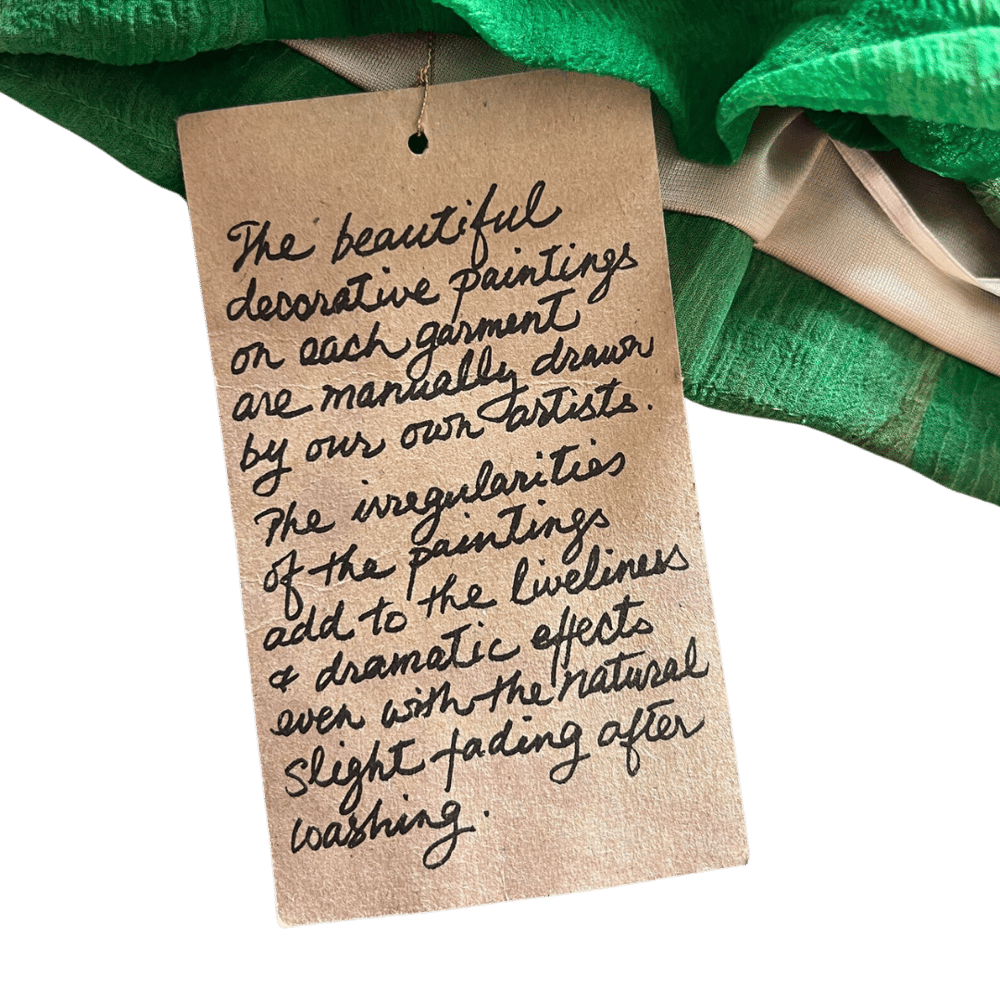 The beautiful
decorative paintings
on each garment
are manually drawn
by our own artists.
The irregularities
of the paintings
add to the liveliness
& dramatic effects
even with the natural
slight fading after
washing.